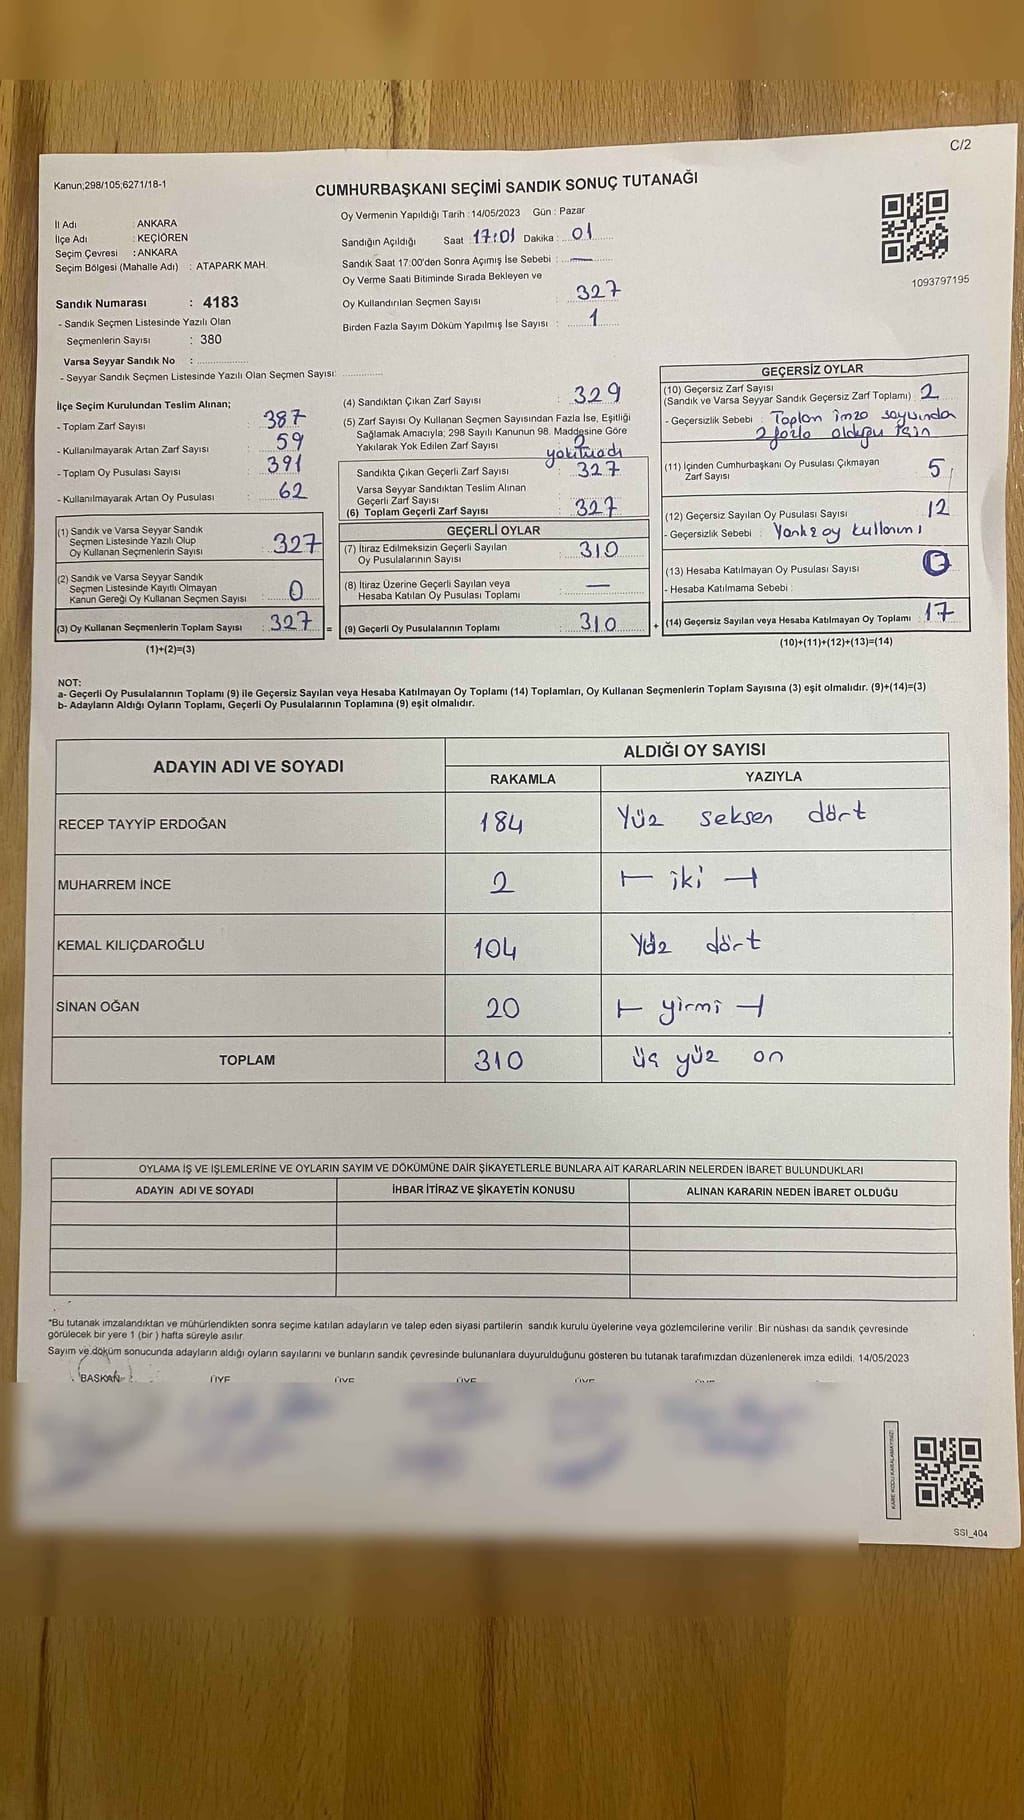 C/2
Kanun;298/105;6271/18-1
CUMHURBAŞKANI SEÇİMİ SANDIK SONUÇ TUTANAĞI
İl Adı : ANKARA
İlçe Adı : KEÇİÖREN
Seçim Çevresi : ANKARA
Seçim Bölgesi (Mahalle Adı) : ATAPARK MAH.
Sandık Numarası : 4183
- Sandık Seçmen Listesinde Yazılı Olan
Seçmenlerin Sayısı : 380
Varsa Seyyar Sandık No :
- Seyyar Sandık Seçmen Listesinde Yazılı Olan Seçmen Sayısı:
Oy Vermenin Yapıldığı Tarih : 14/05/2023 Gün : Pazar
Sandığın Açıldığı Saat 17:01 Dakika : 01
Sandık Saat 17:00'den Sonra Açımış İse Sebebi : —
Oy Verme Saati Bitiminde Sırada Bekleyen ve
Oy Kullandırılan Seçmen Sayısı : 327
Birden Fazla Sayım Döküm Yapılmış İse Sayısı : 1
1093797195
İlçe Seçim Kurulundan Teslim Alınan;
- Toplam Zarf Sayısı : 387
- Kullanılmayarak Artan Zarf Sayısı : 59
- Toplam Oy Pusulası Sayısı : 391
- Kullanılmayarak Artan Oy Pusulası : 62
(1) Sandık ve Varsa Seyyar Sandık
Seçmen Listesinde Yazılı Olup
Oy Kullanan Seçmenlerin Sayısı : 327
(2) Sandık ve Varsa Seyyar Sandık
Seçmen Listesinde Kayıtlı Olmayan
Kanun Gereği Oy Kullanan Seçmen Sayısı : 0
(3) Oy Kullanan Seçmenlerin Toplam Sayısı : 327 =
(1)+(2)=(3)
(4) Sandıktan Çıkan Zarf Sayısı : 329
(5) Zarf Sayısı Oy Kullanan Seçmen Sayısından Fazla İse, Eşitliği
Sağlamak Amacıyla; 298 Sayılı Kanunun 98. Maddesine Göre
Yakılarak Yok Edilen Zarf Sayısı : 2
yakılmadı
Sandıkta Çıkan Geçerli Zarf Sayısı : 327
Varsa Seyyar Sandıktan Teslim Alınan
Geçerli Zarf Sayısı
(6) Toplam Geçerli Zarf Sayısı : 327
GEÇERLİ OYLAR
(7) İtiraz Edilmeksizin Geçerli Sayılan
Oy Pusulalarının Sayısı : 310
(8) İtiraz Üzerine Geçerli Sayılan veya
Hesaba Katılan Oy Pusulası Toplamı : —
(9) Geçerli Oy Pusulalarının Toplamı : 310 +
GEÇERSİZ OYLAR
(10) Geçersiz Zarf Sayısı
(Sandık ve Varsa Seyyar Sandık Geçersiz Zarf Toplamı) : 2
- Geçersizlik Sebebi : Toplam imza sayısında
2 fazla olduğu için
(11) İçinden Cumhurbaşkanı Oy Pusulası Çıkmayan
Zarf Sayısı : 5
(12) Geçersiz Sayılan Oy Pusulası Sayısı : 12
- Geçersizlik Sebebi : Yanlış oy kullanımı
(13) Hesaba Katılmayan Oy Pusulası Sayısı : 0
- Hesaba Katılmama Sebebi :
(14) Geçersiz Sayılan veya Hesaba Katılmayan Oy Toplamı : 17
(10)+(11)+(12)+(13)=(14)
NOT:
a- Geçerli Oy Pusulalarının Toplamı (9) ile Geçersiz Sayılan veya Hesaba Katılmayan Oy Toplamı (14) Toplamları, Oy Kullanan Seçmenlerin Toplam Sayısına (3) eşit olmalıdır. (9)+(14)=(3)
b- Adayların Aldığı Oyların Toplamı, Geçerli Oy Pusulalarının Toplamına (9) eşit olmalıdır.
ADAYIN ADI VE SOYADI ALDIĞI OY SAYISI
RAKAMLA YAZIYLA
RECEP TAYYİP ERDOĞAN 184 Yüz seksen dört
MUHARREM İNCE 2 iki
KEMAL KILIÇDAROĞLU 104 Yüz dört
SİNAN OĞAN 20 yirmi
TOPLAM 310 üç yüz on
OYLAMA İŞ VE İŞLEMLERİNE VE OYLARIN SAYIM VE DÖKÜMÜNE DAİR ŞİKAYETLERLE BUNLARA AİT KARARLARIN NELERDEN İBARET BULUNDUKLARI
ADAYIN ADI VE SOYADI İHBAR İTİRAZ VE ŞİKAYETİN KONUSU ALINAN KARARIN NEDEN İBARET OLDUĞU
*Bu tutanak imzalandıktan ve mühürlendikten sonra seçime katılan adayların ve talep eden siyasi partilerin sandık kurulu üyelerine veya gözlemcilerine verilir .Bir nüshası da sandık çevresinde
görülecek bir yere 1 (bir ) hafta süreyle asılır.
Sayım ve döküm sonucunda adayların aldığı oyların sayılarını ve bunların sandık çevresinde bulunanlara duyurulduğunu gösteren bu tutanak tarafımızdan düzenlenerek imza edildi. 14/05/2023
BAŞKAN ÜYE ÜYE ÜYE ÜYE
KARE KODU KARALAMAYINIZ!
SSI_404